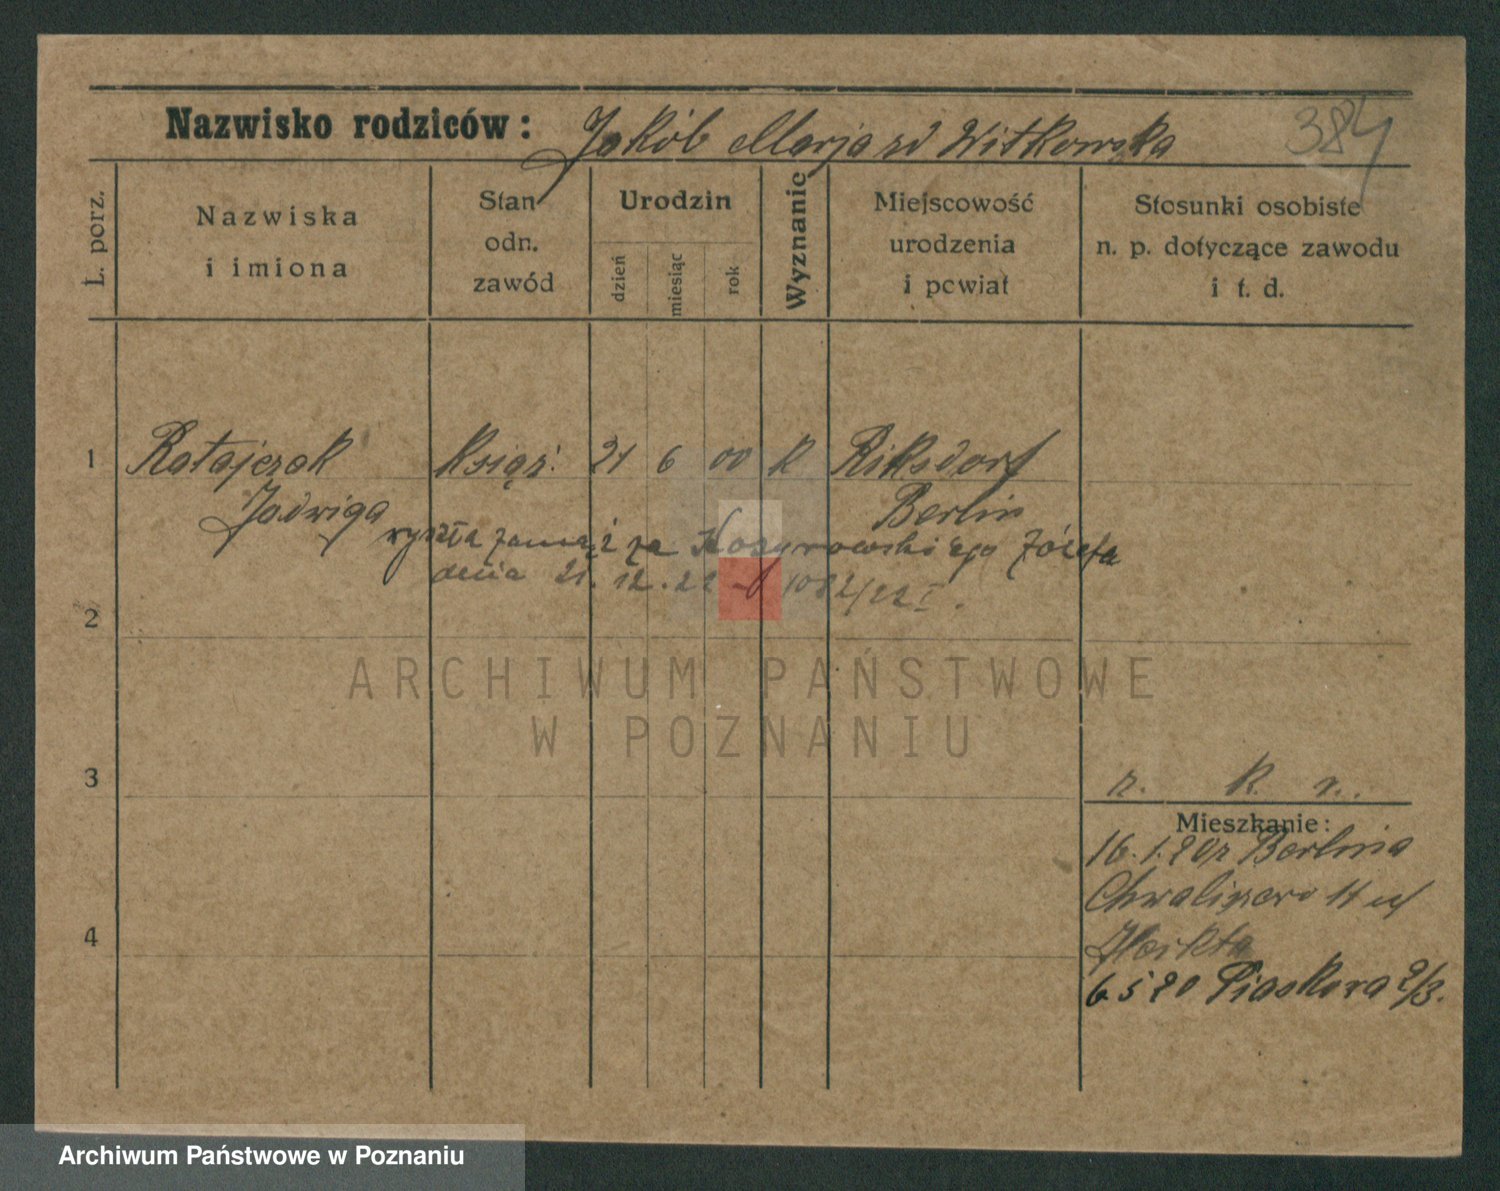 Nazwisko rodziców: Jakób Marja zd Witkowska
384
L. porz.
Nazwiska
i imiona
Stan
odn.
zawód
Urodzin
dzień
miesiąc
rok
Wyznanie
Miejscowość
urodzenia
i powiat
Stosunki osobiste
n. p. dotyczące zawodu
i t. d.
1 Ratajczak Książ. 21 6 00 K Riksdorf
Jadwiga Berlin
wyszła zamąż za Józefa
dnia 21.12.22 1082/22 I.
2
ARCHIWUM PAŃSTWOWE
W POZNANIU
3
r. k. r.
Mieszkanie:
16.1.20 z Berlina
Chwaliszewo
4
6 5 20 Piaskowa 2/3.
Archiwum Państwowe w Poznaniu